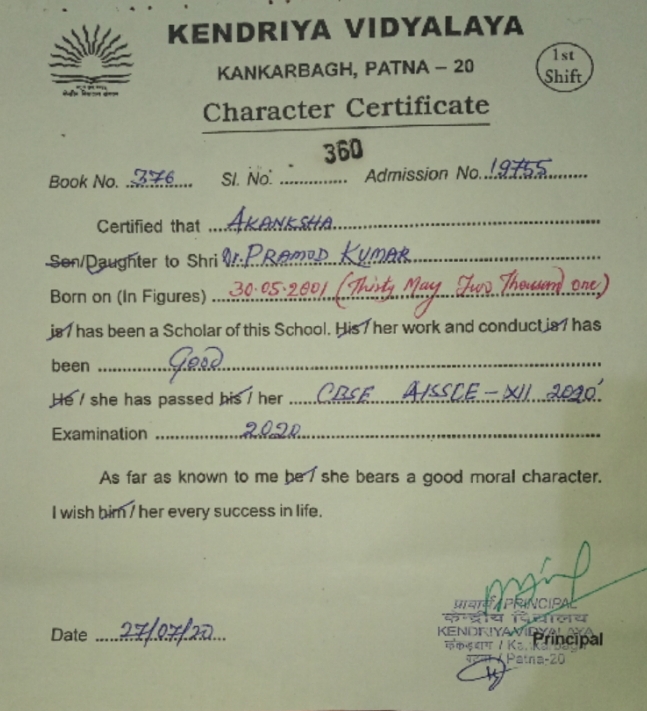 KENDRIYA VIDYALAYA
KANKARBAGH, PATNA – 20
1st
Shift
केन्द्रीय विद्यालय संगठन
Character Certificate
360
Book No. 376 Sl. No. Admission No. 19755
Certified that AKANKSHA
Son/Daughter to Shri Dr. PRAMOD KUMAR
Born on (In Figures) 30.05.2001 (Thirty May Two Thousand one)
is/ has been a Scholar of this School. His/ her work and conduct is/ has
been Good
He / she has passed his / her CBSE AISSCE – XII 2020
Examination 2020
As far as known to me he / she bears a good moral character.
I wish him / her every success in life.
Date 27/07/20
प्राचार्य / PRINCIPAL
केन्द्रीय विद्यालय
KENDRIYA VIDYALAYA
Principal
कंकड़बाग / Kankarbagh
पटना / Patna-20